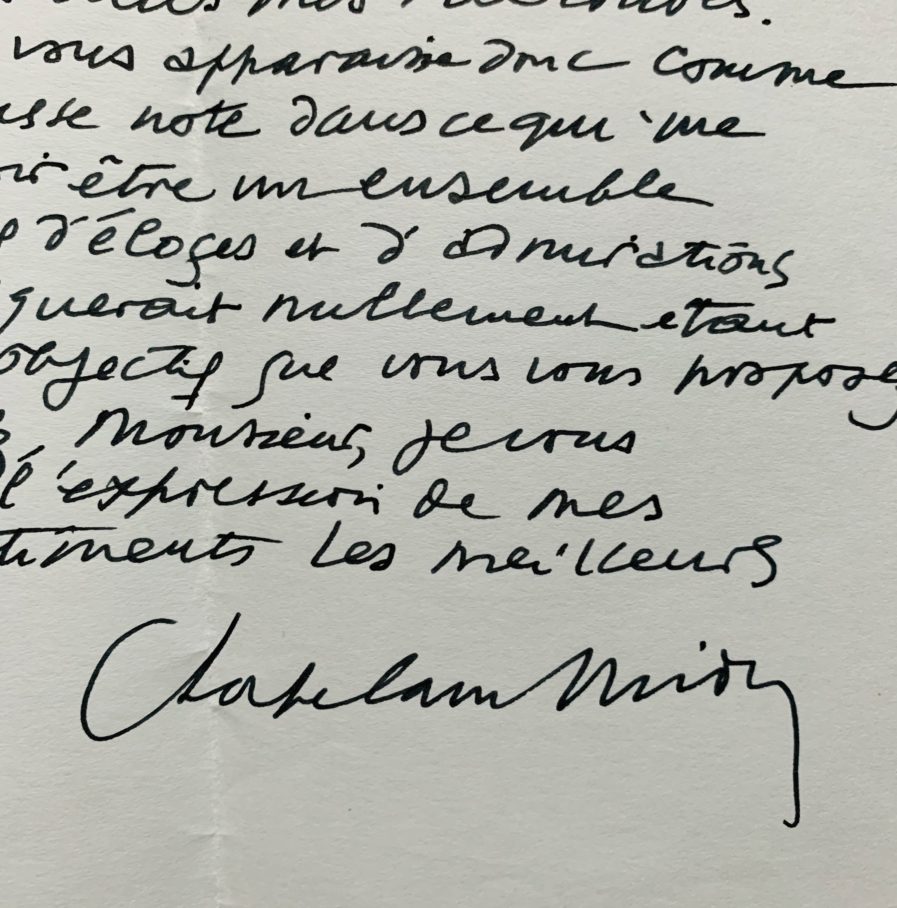 vous apparaisse donc comme
usse note dans ce qui me
oir être un ensemble
d'éloges et d'admirations
querait nullement étant
objectif que vous vous propose
Monsieur, je vous
l'expression de mes
timents les meilleurs
Chapelain Midy